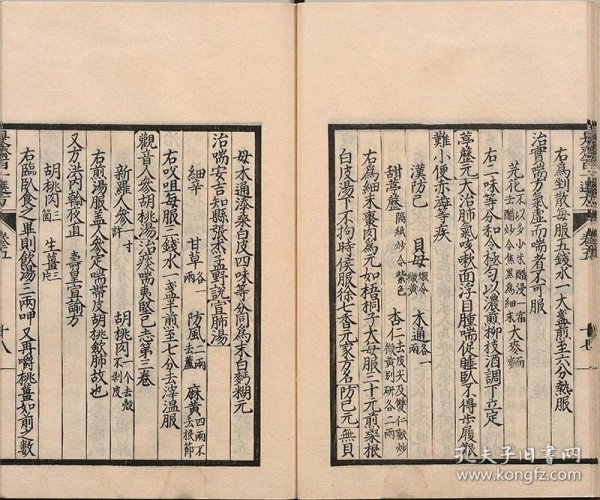 右為剉散每服五錢水一大盞煎至六分熱服
治實喘方氣虛而喘者不可服
芫花 不以多少米醋浸一宿去醋炒令焦黑為細末 大麥麵
右二味等分和令極勻以濃煎柳枝酒調下立定
葶藶元大治肺氣咳嗽面浮目腫喘促睡臥不得步履艱
難小便赤澁等疾
漢防己 貝母煨令微黃 木通各一兩
甜葶藶隔紙炒令紫色 杏仁去皮尖及雙仁麩炒微黃別研各二兩
右為細末棗肉為元如梧桐子大每服二十元煎桑根
白皮湯下不拘時候服徐七香元家方名防己元無貝
母木通添桑白皮四味等分同為末白麪糊元
治喘安吉知縣張术孟野說宣肺湯
細辛 甘草各二兩 防風一兩去蘆 麻黃四兩不去根節
右㕮咀每服三錢水一盞半煎至七分去滓溫服
觀音人參胡桃湯治痰喘夷堅己志第三卷
新羅人參一寸許 胡桃肉一个去殼不剥皮
右煎湯服蓋人參定喘帶皮胡桃斂肺故也
又方洪内翰夜直 壽皇宣諭方
胡桃肉三箇 生薑三片
右臨臥食之畢則飲湯三兩呷又再嚼桃薑如前之數
卷五
十七
卷五
十八
孔夫子旧书网
www.kongfz.com